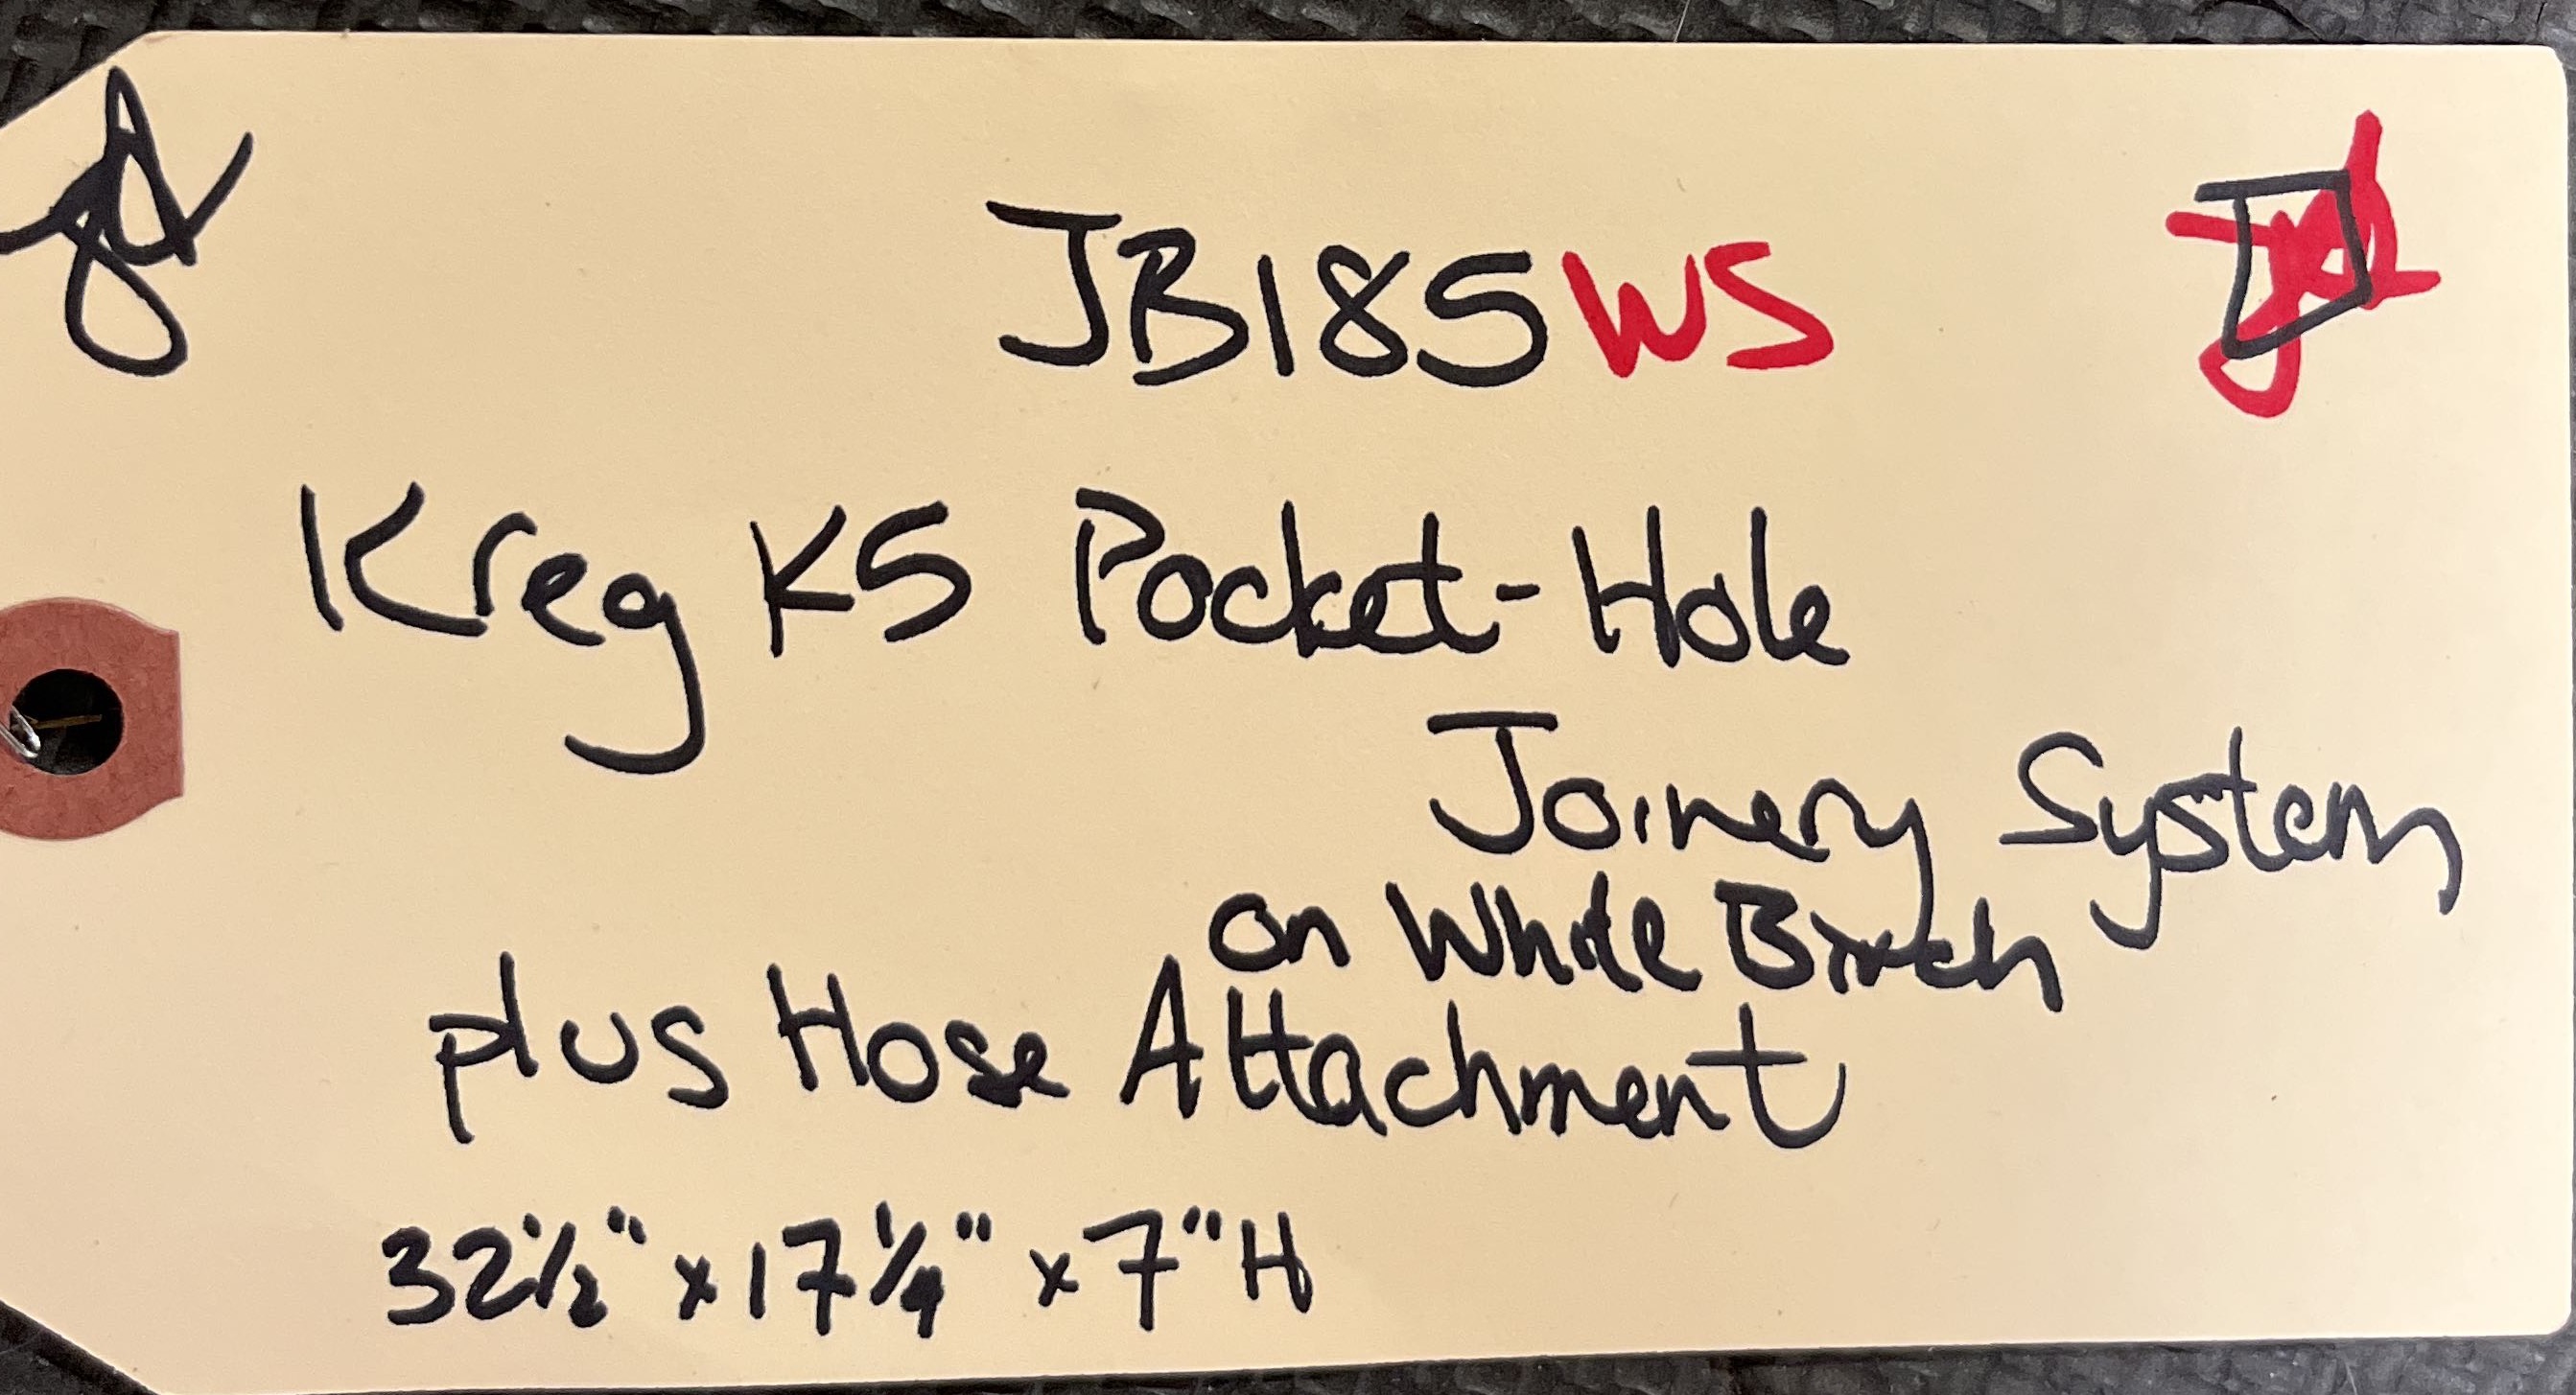 JB185WS
Kreg K5 Pocket-Hole
Joinery System
on White Birch
plus Hose Attachment
32 1/2" x 17 1/4" x 7" H